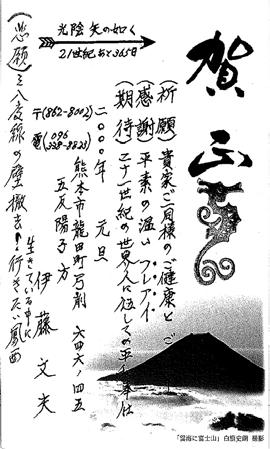 賀正
光陰矢の如く
21世紀あと365日
(祈願) 貴家ご一同様のご健康と ご
(感謝) 平素の温い フレアイ
(期待) 二十一世紀の世界人に伍しての平
二〇〇〇年 元旦
〒(862-8002)
熊本市龍田町弓削 六四六ノ四五
電 (096 338-8823)
五反陽子方
伊藤文夫
(悲願) 三八度線の壁撤去!行きたい
生きている中に
「雲海に富士山」 白籏史朗 撮影